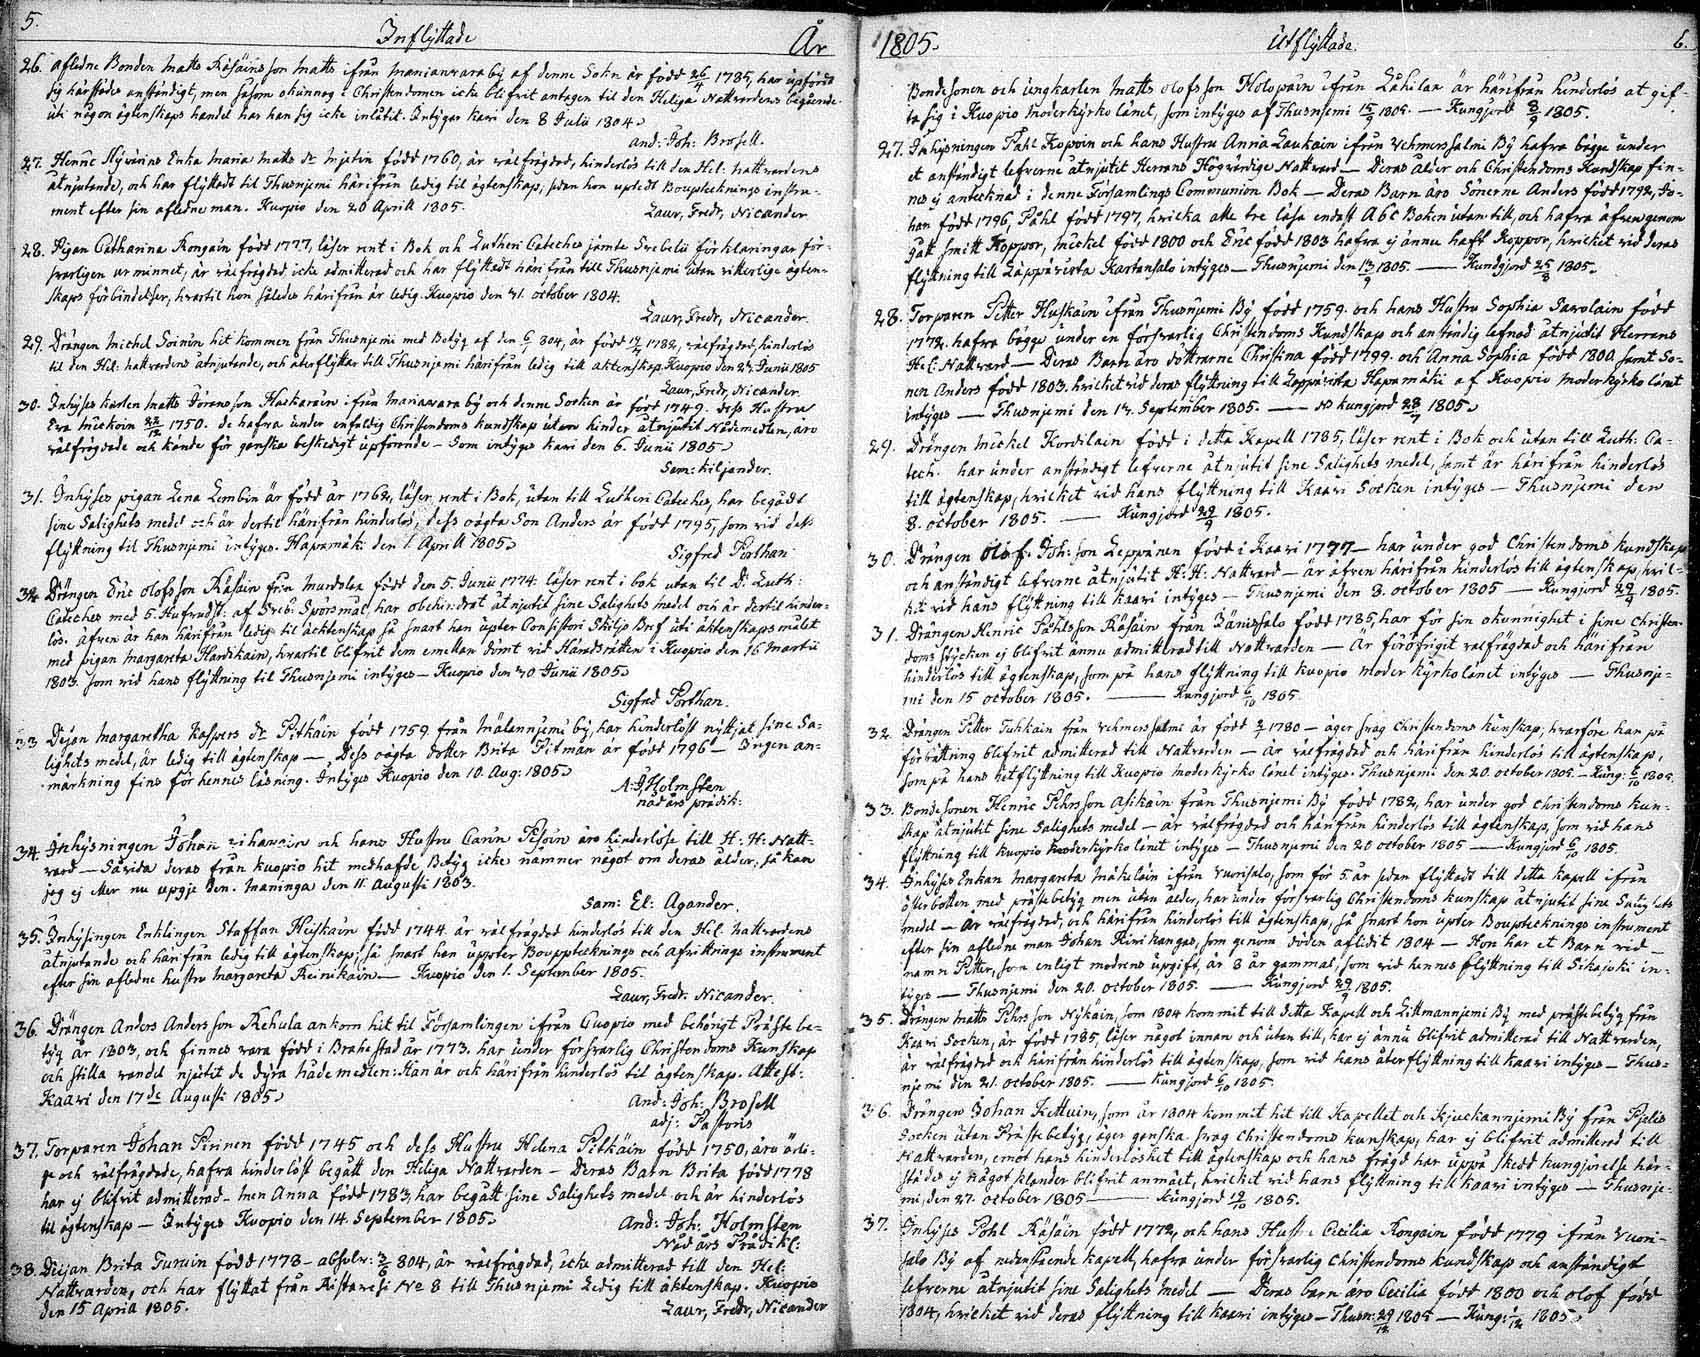 5.
Inflyttade
År
26. Afledne Bonden Matts Räsäins son Matts ifrån Manianvara by af denne Sokn är född 26/4 1785, har upfördt
sig härstädes anständigt, men såsom okunnog i Christendomen icke blifvit antagen til den Heliga Nattvardens begående.
uti någon ägtenskaps handel har han sig icke inlåtit. Intygar Kavi den 8 Julii 1804.
And: Joh: Brosell.
27. Henric Hyvärins Enka Maria Matts dr född 1760, är välfrägdad, hinderlös till den Hel: Nattvardens
åtnjutande, och har flyttadt til Thusnjemi härifrån ledig til ägtenskap, sedan hon uptedt Boupteckning instru-
ment efter sin afledne man. Kuopio den 20 Aprill 1805.
Laur, Fredr, Nicander
28. Pigan Catharina Rongain född 1777, läser rent i Bok och Lutheri Cateches jämte Svebelii förklaringar för-
svarligen ur minnet, är välfrägdad, icke admitterad och har flyttadt härifrån till Thusnjemi utan vitterlige ägten-
skaps förbindelser, hvartil hon således härifrån är ledig. Kuopio den 31. october 1804.
Laur, Fredr, Nicander.
29. Drängen Michel Soinin hit kommen från Thusnjemi med Betyg af den 804, är född 1782, välfrägdad, hinderlös
til den Hel: Nattvardens åtnjutande, och återflyttar till Thusnjemi härifrån ledig till äktenskap. Kuopio den 27. Junii 1805
Laur, Fredr, Nicander
30. Inhyses karlen Matts Jöransson Haskarain ifrån Manianvara by och denne Socken är född 1749. dess Hustru
Eva Mickoin 22/12 1750. de hafva under enfaldig Christendoms kundskap utan hinder åtnjutit Nådemedlen, äro
välfrägdade och kände för ganska beskedligt upförande – Som intyges Kavi den 6. Junii 1805.
Sam: Kiljander.
31. Inhyses pigan Lena Lembin är född år 1762, läser rent i Bok, utan till Lutheri Cateches, har begådt
sine Salighets medel och är dertil härifrån hinderlös, dess oägta Son Anders är född 1795, som vid dess
flyttning til Thusnjemi intyges. Hapamäki den 1. Aprill 1805.
Sigfred Porthan
32. Drängen Eric Olofsson Räsäin från född den 5. Junii 1774. läser rent i bok utan til D: Luth:
Cateches med 5. Hufvudst: af Sveb: Sporsmål, har obehindrat åtnjutit sine Salighets medel och är dertil hinder-
lös. äfven är han härifrån ledig til äcktenskap så snart han upter Consistorii Skiljo Bref uti äktenskaps målet
med pigan Margareta Hardikain, hvartil blifvit dem emellan dömt vid Häradsrätten i Kuopio den 16 Martii
1803. som vid hans flyttning til Thusnjemi intyges – Kuopio den 30 Junii 1805.
Sigfred Porthan.
33 Dejan Margaretha Kaspers dr Pitkäin född 1759 från Mälannjemi by, har hinderlöst nyttjat sine Sa-
lighets medel, är ledig till ägtenskap – Dess oägta dotter Brita Pitman är född 1796 – Ingen an-
märkning fins för hennes läsning. Intyges Kuopio den 10. Aug: 1805.
A: J Holmsten
nådårs prädik:
34. Inhysningen Johan och hans Hustru Carin Pesoin äro hinderlöse till H: H: Natt-
vard – Såvida deras från Kuopio hit medhafde Betyg icke nämner något om deras ålder, så kan
jag ej eller nu upge den. Maninga den 11. Augusti 1803.
Sam: El: Agander.
35. Inhysingen Enklingen Staffan Heiskain född 1744. är välfrägdad hinderlös till den Hel. Nattvardens
åtnjutande och härifrån ledig till ägtenskap; så snart han uppter Bouppteknings och Afvittrings instrument
efter sin afledne hustru Margareta Reinikain – Kuopio den 1. September 1805.
Laur, Fredr. Nicander.
36. Drängen Anders Andersson Rehula ankom hit til Församlingen ifrån Cuopio med behörigt Präste be-
tyg år 1803, och finnes vara född i Brahestad år 1773. har under försvarlig Christendoms Kunskap
och stilla vandel njutit de dyra nådemedlen: Han är ock härifrån hinderlös til ägtenskap. Attest:
Kaavi den 17de Augusti 1805.
And: Joh: Brosell
adj: Pastoris
37. Torparen Johan Pirinen född 1745 och dess Hustru Helena Pitkäin född 1750, äro ärli-
ge och välfrägdade, hafva hinderlöst begått den Heliga Nattvarden – Deras Barn Brita född 1778
har ej blifvit admitterad – men Anna född 1783, har begått sine Salighets medel och är hinderlös
til ägtenskap – Intyges Kuopio den 14. September 1805.
And: Joh: Holmsten
Nåd års Prädik:
38. Deijan Brita Turuin född 1778 – absolv: 3/6 804, är välfrägdad, icke admitterad till den Hel:
Nattvarden, och har flyttat från Ristavesi No 8 till Thusnjemi Ledig till äktenskap. Kuopio
den 15 Aprill 1805.
Laur, Fredr, Nicander
1805.
Utflyttade.
6.
Bondesonen och ungkarlen Matts Olofsson Holopain ifrån är härifrån hinderlös at gif-
ta sig i Kuopio Moderkyrko länet, som intyges af Thusnjemi 15/9 1805. — Kungjordt 8/9 1805.
27. Inhysningen Påhl Kopoin och hans Hustru Anna Laukain ifrån Vehmersalmi By hafva bägge under
et anständigt lefverne åtnjutit Herrans Högvärdige Nattvard — Deras ålder och Christendoms Kundskap fin-
nes ej antecknad i denne Församlings Communion Bok — Deras Barn äro Sönerne Anders född 1792, Jo-
han född 1796, Påhl född 1797, hvilka alle tre läsa endast Abc Boken utan till, och hafva äfven genom
gått smitt Koppor, Mickel född 1800 och Eric född 1803 hafva ej ännu haft Koppor, hvilket vid deras
flyttning till Läppävirta Kartansalo intyges — Thusnjemi den 13/9 1805. — Kundgjord 25/8 1805.
28. Torparen Petter Huskain ifrån Thusnjemi By född 1759. och hans Hustru Sophia Savolain född
1772. hafva bägge under en försvarlig Christendoms Kundskap och anständig lefnad åtnjutit Herrans
Hel: Nattvard — Deras Barn äro döttrarne Christina född 1799. och Anna Sophia född 1800. samt So-
nen Anders född 1803. hvilket vid deras flyttning till Leppävirta Hapamäki af Kuopio Moderkyrko länet
intyges — Thusnjemi den 17. September 1805. — kungjord 1805.
29. Drängen Mickel Kordilain född i detta Kapell 1785, läser rent i Bok och utan till Luth: Ca-
tech. har under anständigt lefverne åtnjutit sine Salighets medel, samt är härifrån hinderlös
till ägtenskap, hvilket vid hans flyttning till Kaavi Socken intyges — Thusnjemi den
8. october 1805. — Kungjord 29/9 1805.
30. Drängen Olof Joh: son Leppänen född i Kaavi 1777 — har under god Christendoms kundskap
och anständigt lefverne åtnjutit H: H: Nattvard — är äfven härifrån hinderlös till ägtenskap, hvil-
ket vid hans flyttning till Kaavi intyges — Thusnjemi den 8. october 1805 — Kungjord 29/9 1805.
31. Drängen Henric Påhlsson Räsäin från Jänissalo född 1785, har för sin okunnighet i sine Christen-
doms stycken ej blifvit ännu admitterad till Nattvarden — Är föröfrigit välfrägdad och härifrån
hinderlös till ägtenskap, som på hans flyttning till Kuopio moder kyrkolänet intyges — Thusnje-
mi den 15 october 1805. — Kungjord 6/10 1805.
32. Drängen Petter Tuhkain från Vehmersalmi är född 1780 — äger svag Christendoms kunskap, hvarföre han på
förbättring blifvit admitterad till Nattvarden — är välfrägdad och härifrån hinderlös till ägtenskap,
som på hans utflyttning till Kuopio Moderkyrko länet intyges. Thusnjemi den 20. october 1805. — Kung: 6/10 1805.
33. Bondesonen Henric Pehrsson Asikain från Thusnjemi By född 1782, har under god Christendoms kun-
skap åtnjutit sine Salighets medel — är välfrägdad och härifrån hinderlös till ägtenskap, som vid hans
flyttning till Kuopio Moderkyrko länet intyges — Thusnjemi den 20 october 1805 — Kungjord 6/10 1805.
34. Inhyses Enkan Margareta Mäkeläin ifrån Vuorisalo, som för 5. år sedan flyttadt till detta Kapell ifrån
Österbotten med prästebetyg men utan ålder, har under försvarlig Christendoms kunskap åtnjutit sine Salighets
medel — Är välfrägdad, och härifrån hinderlös till ägtenskap, så snart hon upter Bouptecknings instrument
efter sin afledne man Johan Kivikangas, som genom döden aflidit 1804 — Hon har et Barn vid
namn Petter, som enligt modrens upgift, är 8 år gammal, som vid hennes flyttning till Sikajoki in-
tyges — Thusnjemi den 20. october 1805. — Kungjord 29/9 1805.
35. Drängen Matts Pehrsson Nykäin, som 1804 kommit till detta Kapell och Litmannjemi By med prästebetyg från
Kaavi Socken, är född 1785, läser något innan och utan till, har ej ännu blifvit admitterad till Nattvarden,
är välfrägdad och härifrån hinderlös till ägtenskap, som vid hans återflyttning till Kaavi intyges — Thus-
njemi den 21. october 1805. — Kungjord 6/10 1805.
36. Drängen Johan Kettuin, som år 1804 kommit hit till Kapellet och By från Pjelis
Socken utan Prästebetyg, äger ganska svag Christendoms kunskap, har ej blifvit admitterad till
Nattvarden, emot hans hinderlöshet till ägtenskap och hans frägd har uppå skedd kungjörelse här-
städes ej något klander blifvit anmält, hvilket vid hans flyttning till Kaavi intyges — Thusnje-
mi, den 27. october 1805 — Kungjord 1805.
37. Inhyses Pohl Räsäin född 1772, och hans Hustru Cecilia Rongain född 1779 ifrån Vuori-
salo By af nedenstående kapell, hafva under försvarlig Christendoms kundskap och anständigt
lefverne åtnjutit sine Salighets medel — Deras barn äro Cecilia född 1800 och Olof född
1804, hvilket vid deras flyttning till Kaavi intyges — Thusn: 29/12 1805 — Kung: 1/12 1805.